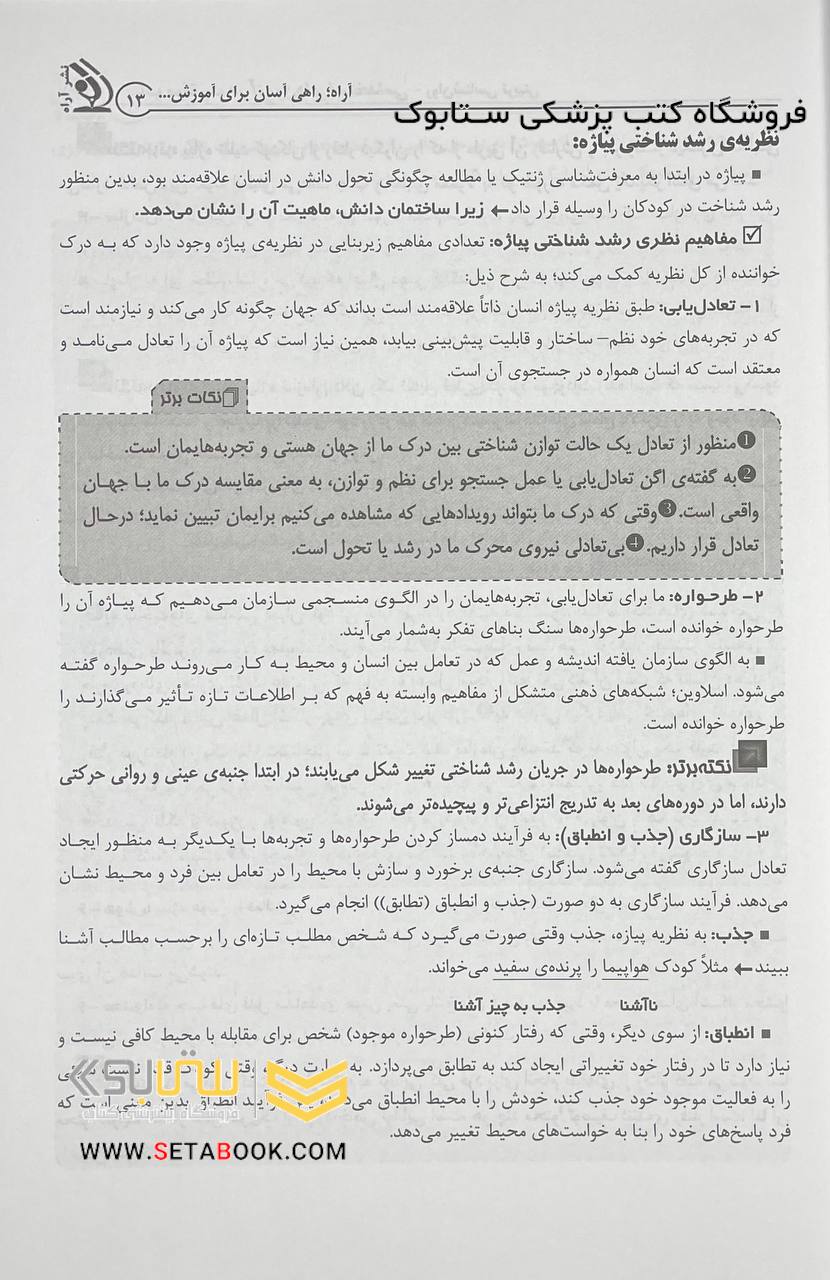 نشر آراه
۱۳
آراه؛ راهی آسان برای آموزش...
فروشگاه کتب پزشکی ستابوک
نظریه‌ی رشد شناختی پیاژه:
■ پیاژه در ابتدا به معرفت‌شناسی ژنتیک یا مطالعه چگونگی تحول دانش در انسان علاقه‌مند بود، بدین منظور
رشد شناخت در کودکان را وسیله قرار داد← زیرا ساختمان دانش، ماهیت آن را نشان می‌دهد.
☑ مفاهیم نظری رشد شناختی پیاژه: تعدادی مفاهیم زیربنایی در نظریه‌ی پیاژه وجود دارد که به درک
خواننده از کل نظریه کمک می‌کند؛ به شرح ذیل:
۱- تعادل‌یابی: طبق نظریه پیاژه انسان ذاتاً علاقه‌مند است بداند که جهان چگونه کار می‌کند و نیازمند است
که در تجربه‌های خود نظم– ساختار و قابلیت پیش‌بینی بیابد، همین نیاز است که پیاژه آن را تعادل می‌نامد و
معتقد است که انسان همواره در جستجوی آن است.
نکات برتر
❶منظور از تعادل یک حالت توازن شناختی بین درک ما از جهان هستی و تجربه‌هایمان است.
❷به گفته‌ی اگن تعادل‌یابی یا عمل جستجو برای نظم و توازن، به معنی مقایسه درک ما با جهان
واقعی است. ❸وقتی که درک ما بتواند رویدادهایی که مشاهده می‌کنیم برایمان تبیین نماید؛ درحال
تعادل قرار داریم. ❹بی‌تعادلی نیروی محرک ما در رشد یا تحول است.
۲- طرحواره: ما برای تعادل‌یابی، تجربه‌هایمان را در الگوی منسجمی سازمان می‌دهیم که پیاژه آن را
طرحواره خوانده است، طرحواره‌ها سنگ بناهای تفکر به‌شمار می‌آیند.
■ به الگوی سازمان یافته اندیشه و عمل که در تعامل بین انسان و محیط به کار می‌روند طرحواره گفته
می‌شود. اسلاوین؛ شبکه‌های ذهنی متشکل از مفاهیم وابسته به فهم که بر اطلاعات تازه تأثیر می‌گذارند را
طرحواره خوانده است.
نکته‌برتر: طرحواره‌ها در جریان رشد شناختی تغییر شکل می‌یابند؛ در ابتدا جنبه‌ی عینی و روانی حرکتی
دارند، اما در دوره‌های بعد به تدریج انتزاعی‌تر و پیچیده‌تر می‌شوند.
۳- سازگاری (جذب و انطباق): به فرآیند دمساز کردن طرحواره‌ها و تجربه‌ها با یکدیگر به منظور ایجاد
تعادل سازگاری گفته می‌شود. سازگاری جنبه‌ی برخورد و سازش با محیط را در تعامل بین فرد و محیط نشان
می‌دهد. فرآیند سازگاری به دو صورت (جذب و انطباق (تطابق)) انجام می‌گیرد.
■ جذب: به نظریه پیاژه، جذب وقتی صورت می‌گیرد که شخص مطلب تازه‌ای را برحسب مطالب آشنا
ببیند← مثلاً کودک هواپیما را پرنده‌ی سفید می‌خواند.
ناآشنا جذب به چیز آشنا
■ انطباق: از سوی دیگر، وقتی که رفتار کنونی (طرحواره موجود) شخص برای مقابله با محیط کافی نیست و
نیاز دارد تا در رفتار خود تغییراتی ایجاد کند به تطابق می‌پردازد. به عبارت دیگر وقتی کودک قادر نیست
را به فعالیت موجود خود جذب کند، خودش را با محیط انطباق می‌دهد. فرآیند انطباق بدین معنی است که
فرد پاسخ‌های خود را بنا به خواست‌های محیط تغییر می‌دهد.
ستابوک
فروشگاه اینترنتی کتاب
WWW.SETABOOK.COM